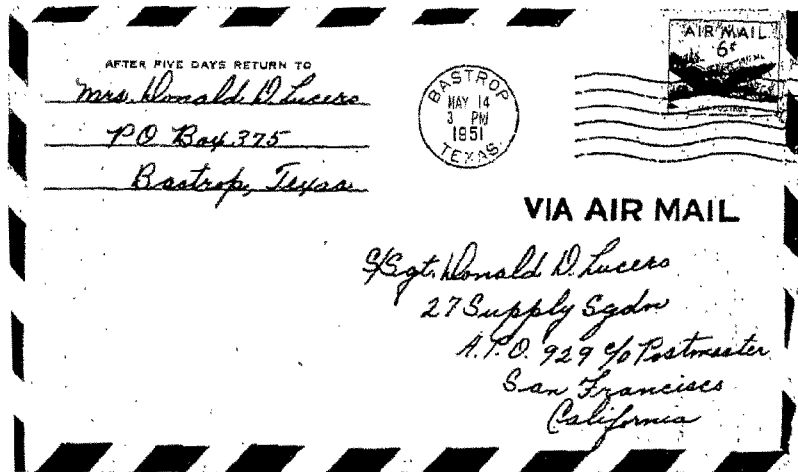 AFTER FIVE DAYS RETURN TO
Mrs. Donald D. Lucero
PO Box 375
Bastrop, Texas
BASTROP
MAY 14
3 PM
1951
TEXAS.
AIR MAIL
6¢
POSTAGE
VIA AIR MAIL
S/Sgt. Donald D. Lucero
27 Supply Sqdn
A.P.O. 929 c/o Postmaster
San Francisco
California